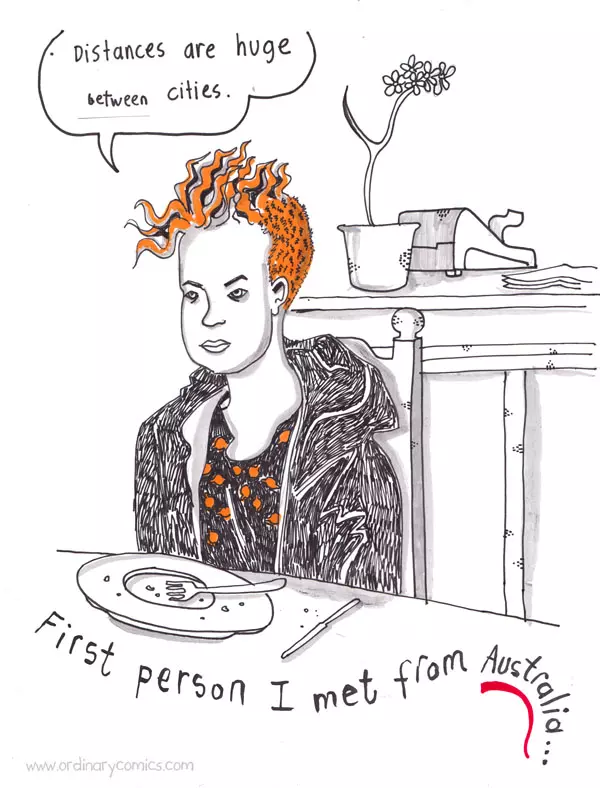 . Distances are huge
between cities.
First person I met from Australia...
www.ordinarycomics.com